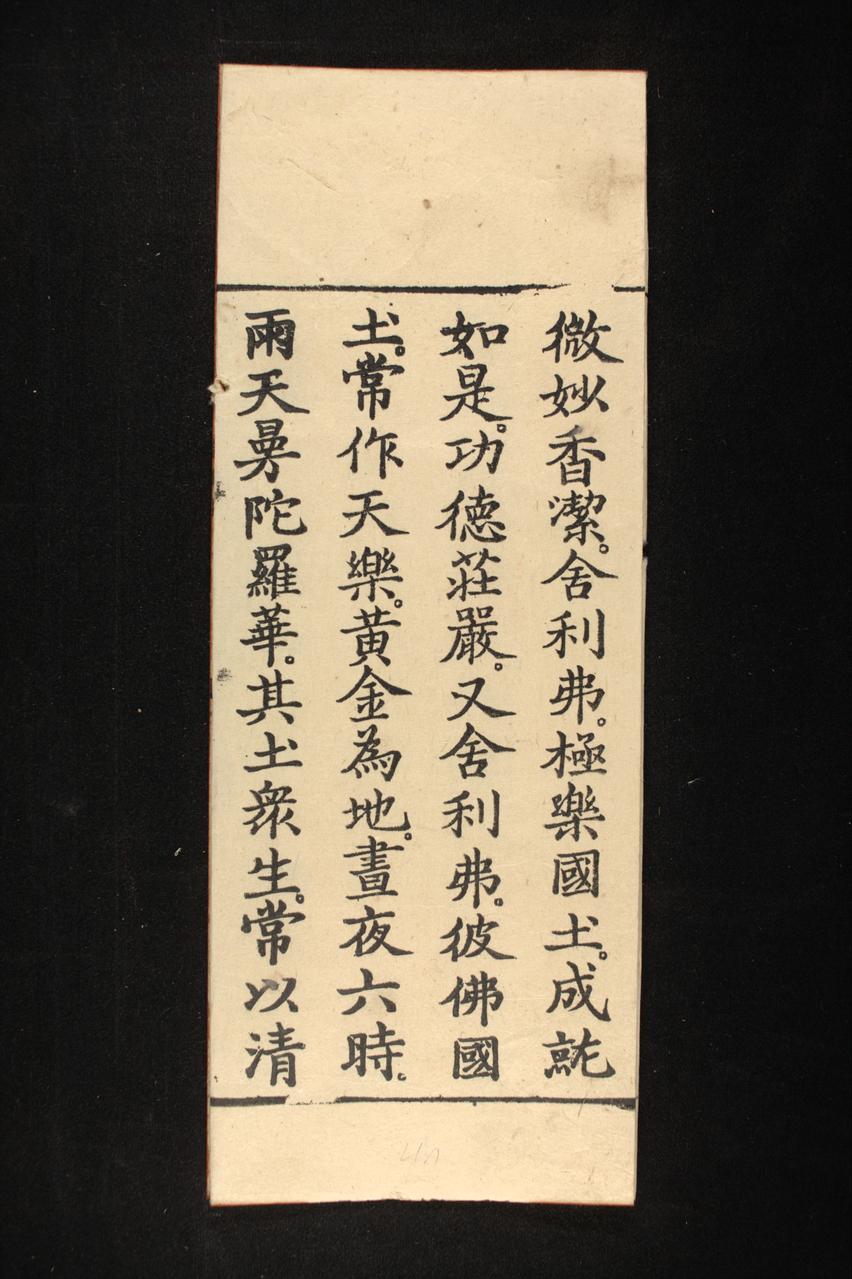 微妙香潔。舍利弗。極樂國土。成就
如是。功德莊嚴。又舍利弗。彼佛國
土。常作天樂。黃金為地。晝夜六時。
雨天曼陀羅華。其土眾生。常以清